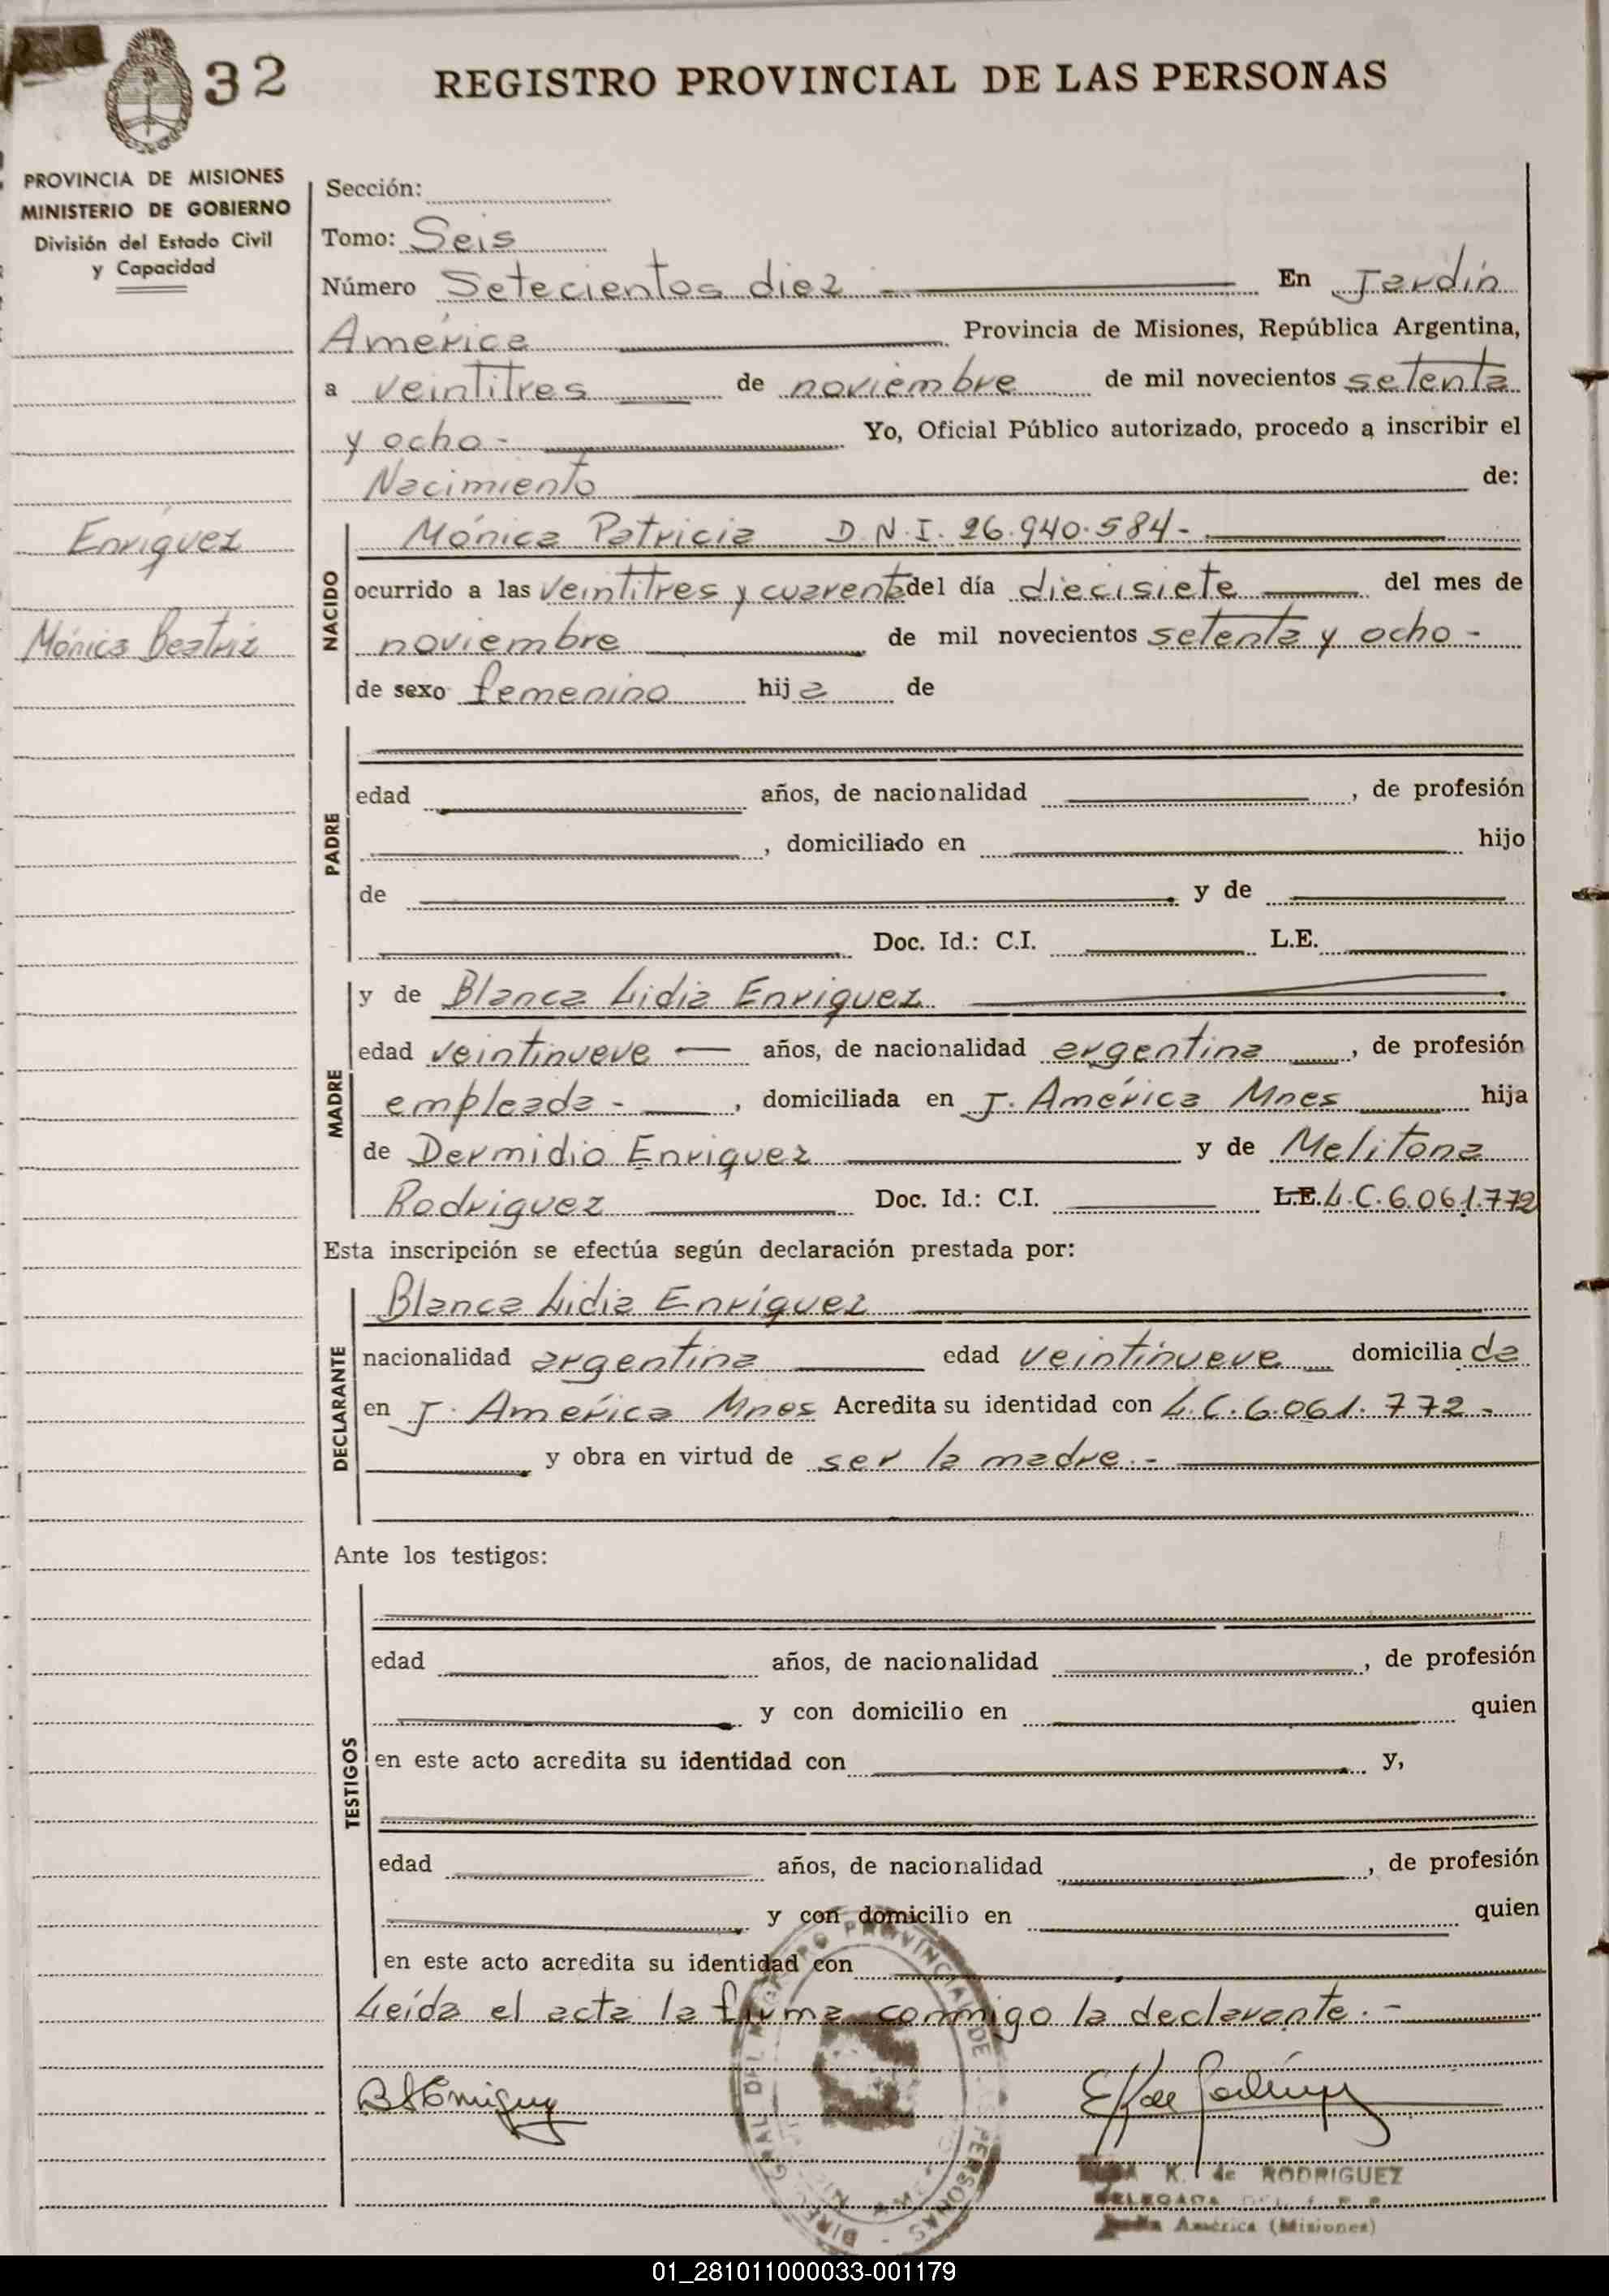 32
REGISTRO PROVINCIAL DE LAS PERSONAS
PROVINCIA DE MISIONES
MINISTERIO DE GOBIERNO
División del Estado Civil
y Capacidad
Enríquez
Mónica Beatriz
Sección:
Tomo: Seis
Número Setecientos diez En Jardín
América Provincia de Misiones, República Argentina,
a veintitres de noviembre de mil novecientos setenta
y ocho.- Yo, Oficial Público autorizado, procedo a inscribir el
Nacimiento de:
NACIDO
Mónica Patricia D.N.I. 26.940.584-
ocurrido a las veintitres y cuarenta del día diecisiete del mes de
noviembre de mil novecientos setenta y ocho-
de sexo femenino hija de
PADRE
edad años, de nacionalidad , de profesión
, domiciliado en hijo
de y de
Doc. Id.: C.I. L.E.
MADRE
y de Blanca Lidia Enriquez
edad veintinueve — años, de nacionalidad argentina , de profesión
empleada- , domiciliada en J. América Mnes hija
de Dermidio Enriquez y de Melitona
Rodriguez Doc. Id.: C.I. L.E. L.C.6.061.772
Esta inscripción se efectúa según declaración prestada por:
DECLARANTE
Blanca Lidia Enríquez
nacionalidad argentina edad veintinueve domiciliada
en J. América Mnes Acredita su identidad con L.C.6.061.772-
y obra en virtud de ser la madre.-
Ante los testigos:
TESTIGOS
edad años, de nacionalidad , de profesión
y con domicilio en quien
en este acto acredita su identidad con y,
edad años, de nacionalidad , de profesión
y con domicilio en quien
en este acto acredita su identidad con
Leída el acta la firma conmigo la declarante.-
K. de RODRIGUEZ
DELEGADA
América (Misiones)
01_281011000033-001179